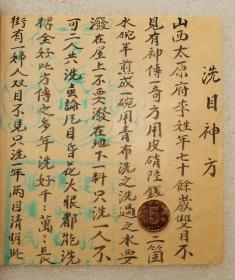 洗目神方
山西太原府李姓年七十餘歲雙目不
見有神傳一奇方用皮硝陸錢一箇
水碗半煎成一碗用青布洗之洗過之水要
潑在屋上不要潑在地下一料只洗一人不
可二人共洗無論凡目昏花火眼都能洗
得全好此方傳之多年洗好千萬之長
街有一婦人双目不見只洗一年两目清明此